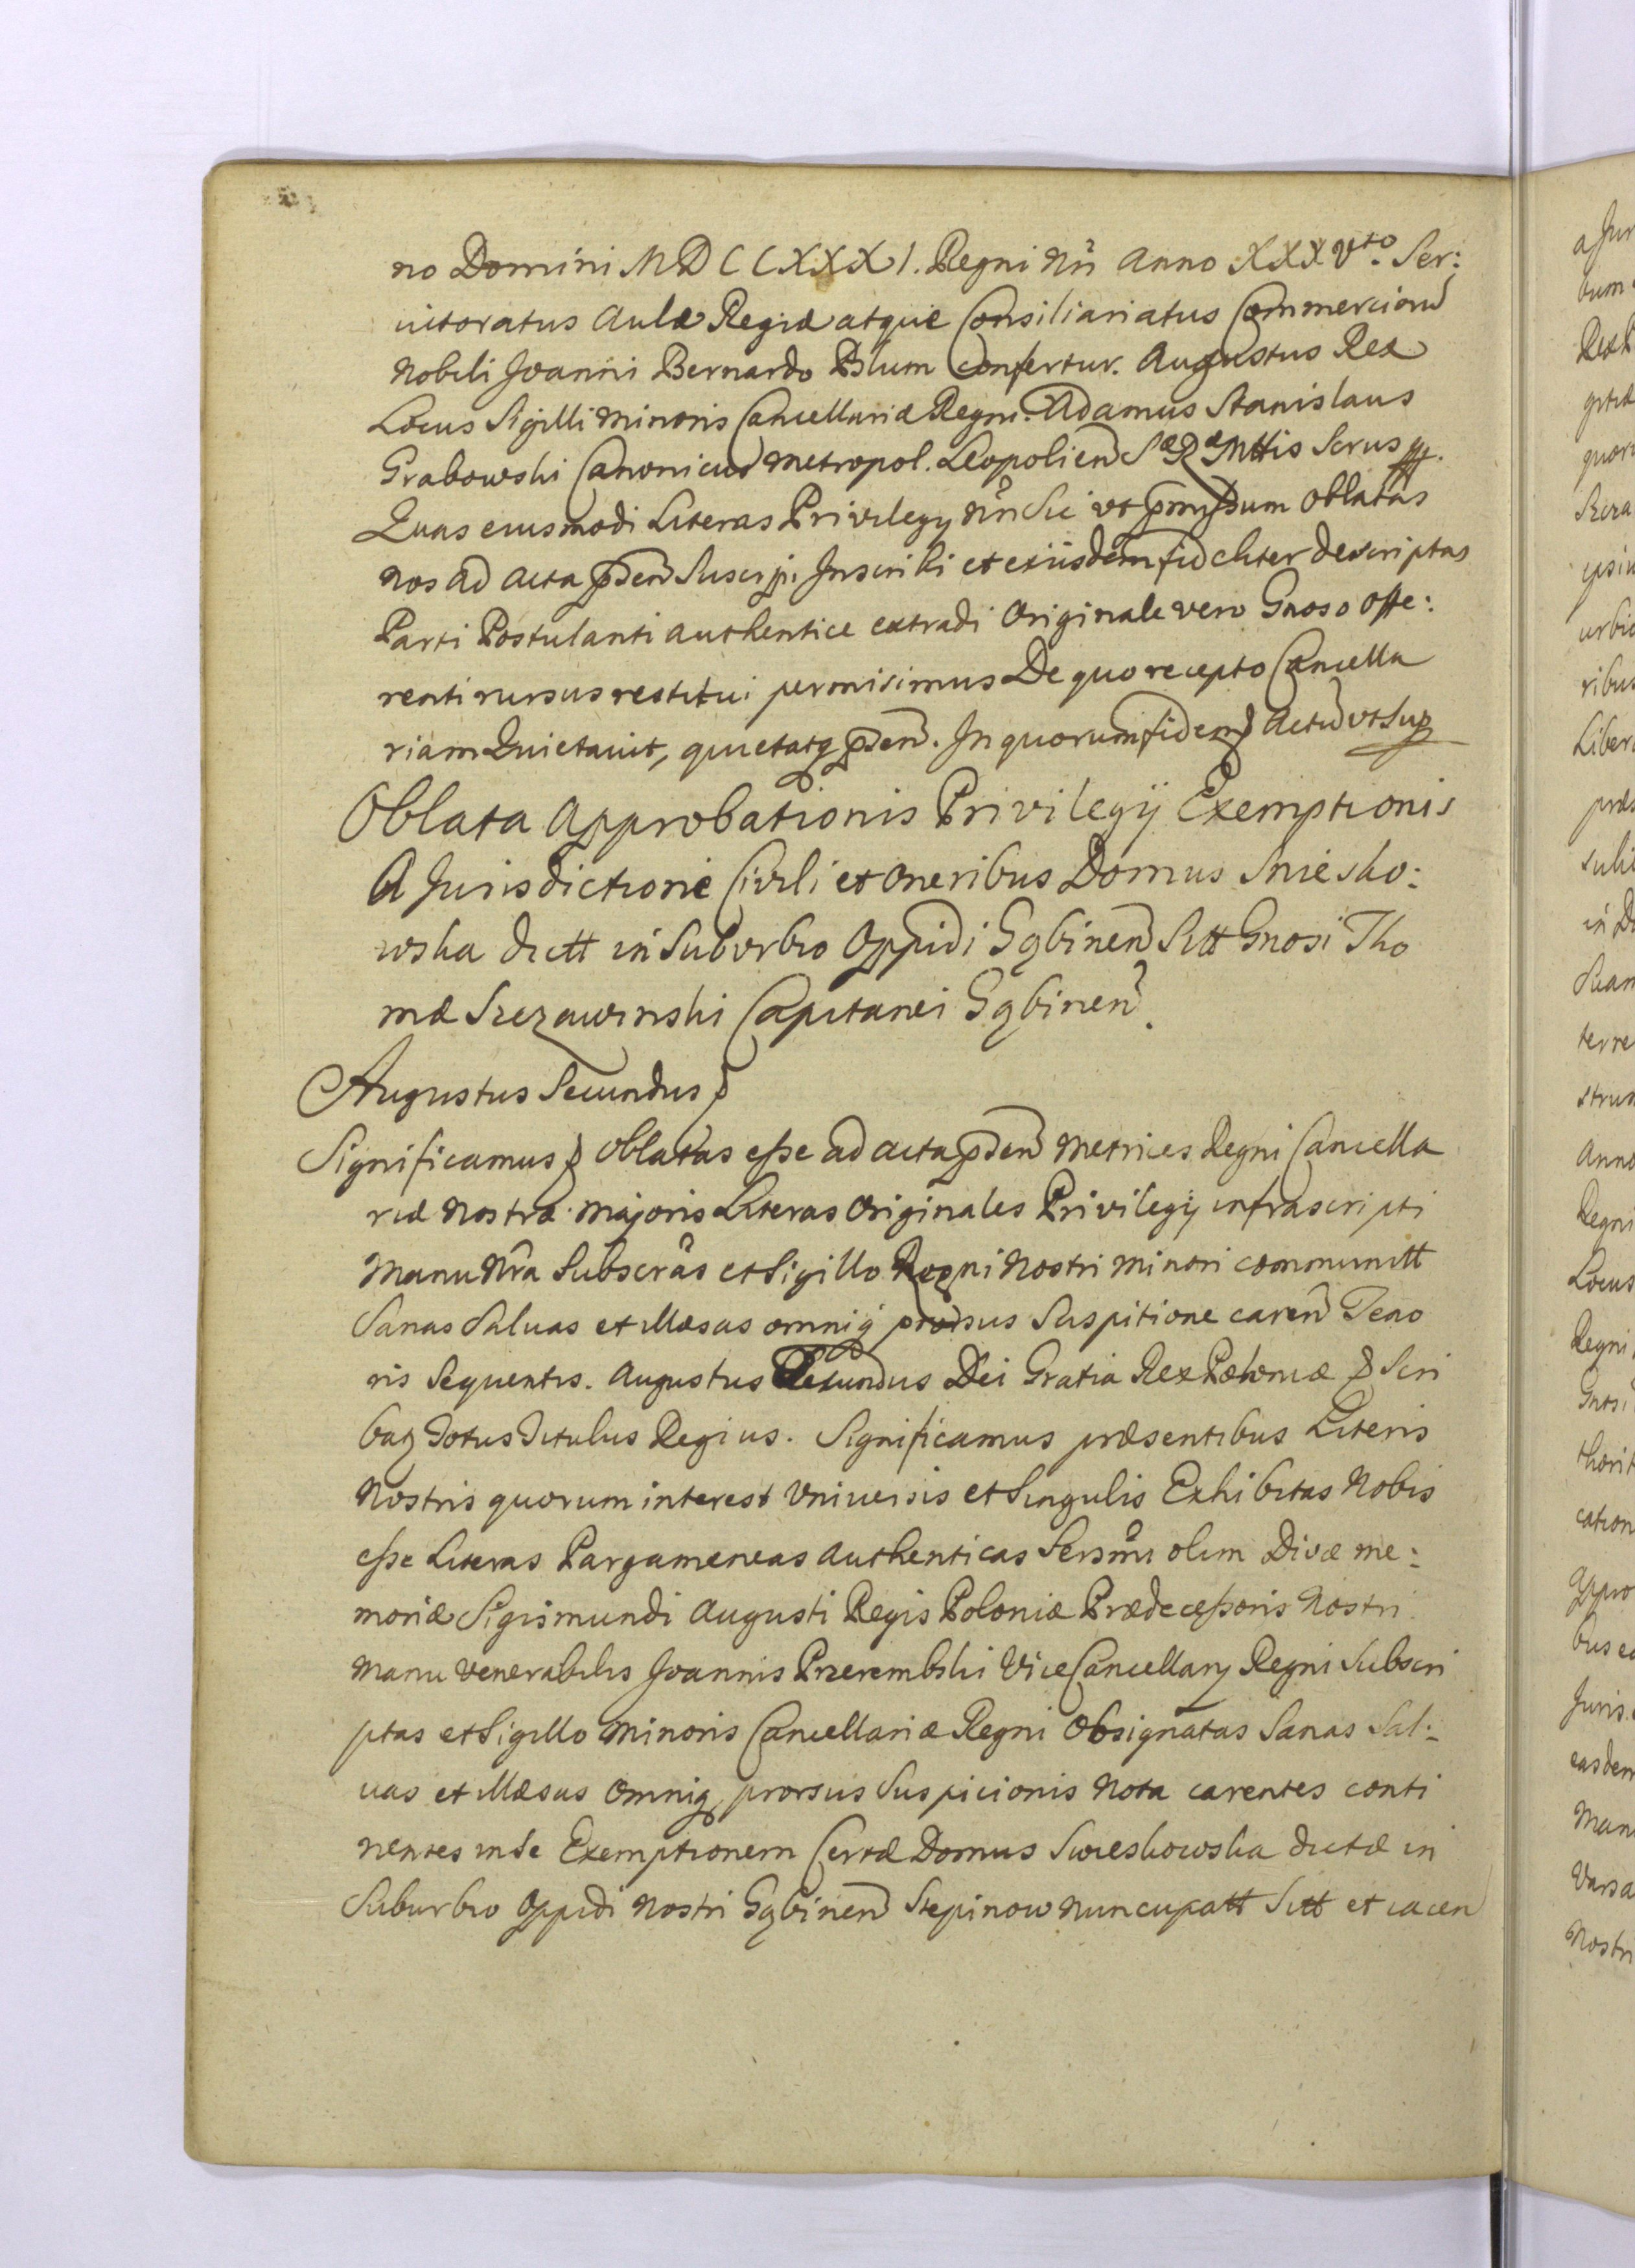 no Domini MDCCXXXI. Regni Nri Anno XXXVto. Ser:
uitoratus Aulæ Regiæ atque Consiliariatus Commerciorũ
Nobili Joanni Bernardo Blum Confertur. Augustus Rex
Locus Sigilli Minoris Cancellariæ Regni. Adamus Stanislaus
Grabowski Canonicus Metropol. Leopolien Sæ Ræ Mttis Secrus
Quas eiusmodi Literas Privilegy Nri Sic vt pmissum oblatas
Nos ad Acta pñsen Suscipi Inscribi et exiisdem fideliter descriptas
Parti Postulanti authentice extradi Originale vero Gnoso offe:
renti rursus restitui permisimus De quo recepto Cancella
riam Quietauit, quietatq pñsen. In quorum fidem Actũ vt Sup
Oblata Approbationis Privilegij Exemptionis
A Jurisdictione Civili et Oneribus Domus Sniesko:
wska dictt in Suburbio Oppidi Gąbinen Sitt Gnosi Tho
mæ Szczawinski Capitanei Gąbinen.
Augustus Secundus
Significamus Oblatas esse ad acta pñsen Metrices Regni Cancella
riæ Nostræ Majoris Literas Originales Privilegij infrascripti
Manu Nra Subscras et Sigillo Regni Nostri Minori communitt
Sanas Saluas et Illæsas omniq prorsus Suspitione caren Teno
ris Sequentis. Augustus Secundus Dei Gratia Rex Poloniæ Scri
batq Totus Titulus Regius. Significamus præsentibus Literis
Nostris quorum interest Vniuersis et Singulis Exhibitas Nobis
esse Literas Pargameneas Authenticas Sersmi olim Divæ me:
moriæ Sigismundi Augusti Regis Poloniæ Prædecessoris Nostri
Manu Venerabilis Joannis Przerembski Vice Cancellary Regni Subscri
ptas et Sigillo Minoris Cancellariæ Regni Obsignatas Sanas Sal:
uas et Illæsas Omniq prorsus Suspicionis Nota carentes conti
nentes in Se Exemptionem Certæ Domus Swieskowska dictæ in
Suburbio Oppidi Nostri Gąbinen Stepinow Nuncupatt Sitt et iacen